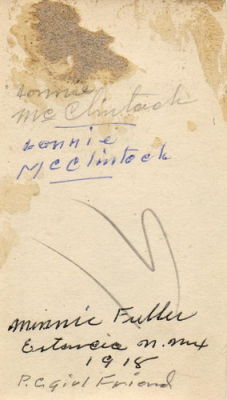 Lonnie
McClintock
Lonnie
McClintock
Minnie Fuller
Estancia N. Mex
1918
P.C girl Friend